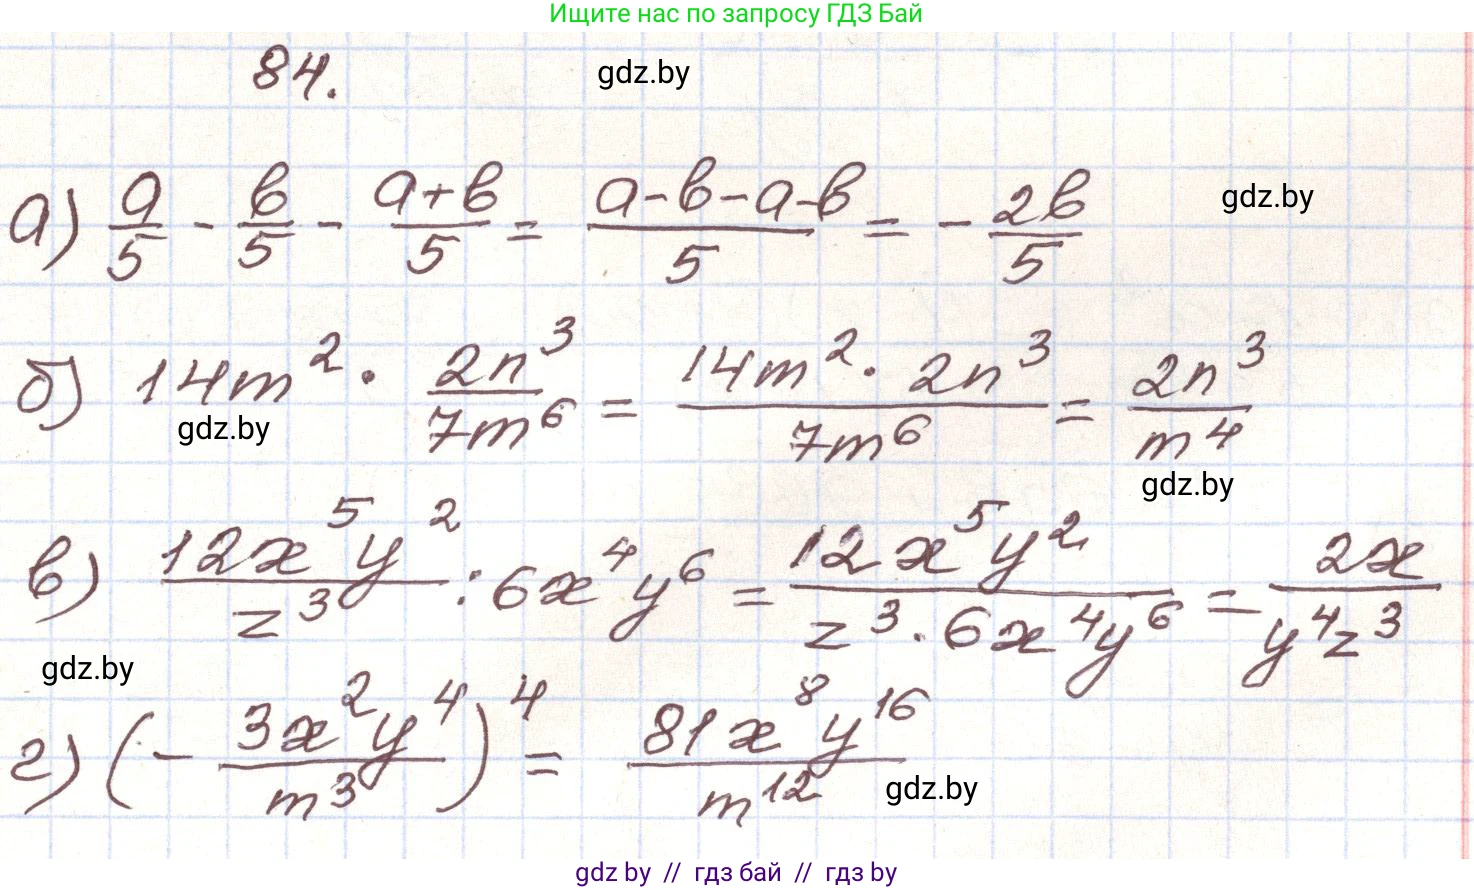 Ищите нас по запросу ГДЗ Бай
84.
gdz.by
а) a/5 - b/5 - (a+b)/5 = (a-b-a-b)/5 = - 2b/5
gdz.by
б) 14m² · 2n³/7m⁶ = 14m² · 2n³/7m⁶ = 2n³/m⁴
gdz.by
gdz.by
в) 12x⁵y²/z³ : 6x⁴y⁶ = 12x⁵y²/z³ · 6x⁴y⁶ = 2x/y⁴z³
gdz.by
г) (- 3x²y⁴/m³)⁴ = 81x⁸y¹⁶/m¹²
gdz.by
gdz by // гдз бай // гдз by